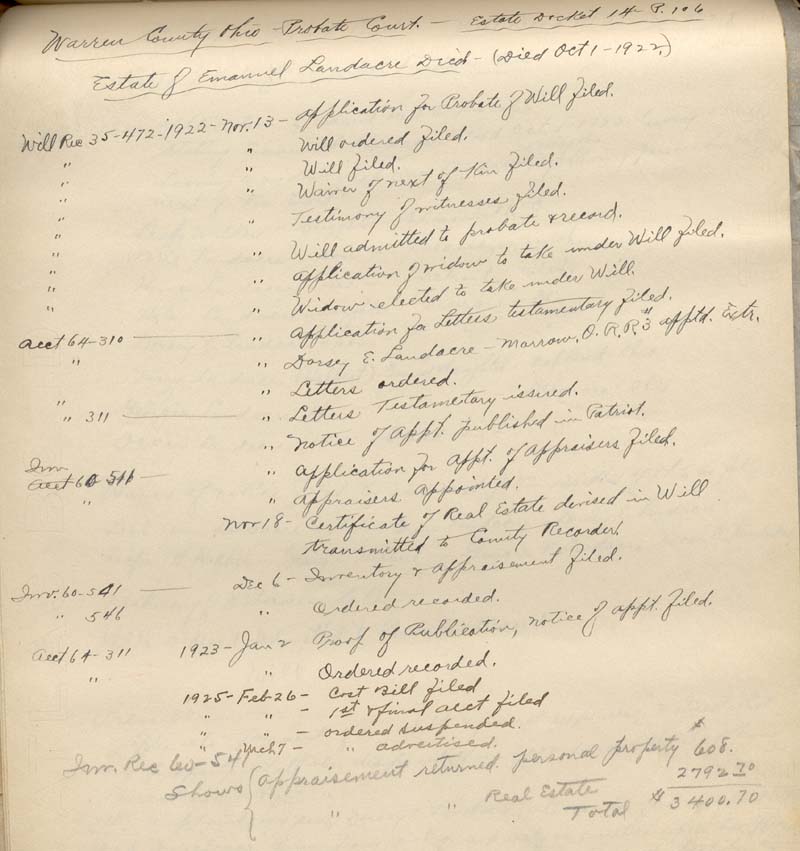 Warren County Ohio - Probate Court. - Estate Docket 14 - P. 106
Estate of Emanuel Landacre Dec'd - (Died Oct 1 - 1922.)
Will Rec 35-472 - 1922 - Nov. 13 - Application for Probate of Will filed.
" " Will ordered filed.
" " Will filed.
" " Waiver of next of Kin filed.
" " Testimony of witnesses filed.
" " Will admitted to probate & record.
" " Application of widow to take under Will filed.
" " Widow elected to take under Will.
Acct 64-310 — " Application for Letters testamentary filed.
" " Dorsey E. Landacre - Marrow, O. R.R. #3 apptd. Extr.
" Letters ordered.
" " Letters Testametary issued.
" 311 — " Notice of Appt. published in Patriot.
Inv. Acct 60 511 — " Application for Appt. of Appraisers filed.
" " Appraisers Appointed.
Nov 18 - Certificate of Real Estate devised in Will
transmitted to County Recorder.
Inv. 60-541 — Dec 6 - Inventory & Appraisement filed.
" 546 " Ordered recorded.
Acct 64-311 1923 - Jan 2 Proof of Publication, notice of appt. filed.
" " Ordered recorded.
1925 - Feb 26 - Cost Bill filed
" " - 1st & final acct filed
" " - ordered suspended.
" Mch 7 - " advertised.
Inv. Rec 60-54
Shows { Appraisement returned personal property 608.
" " Real Estate 2792.70
Total $ 3400.70